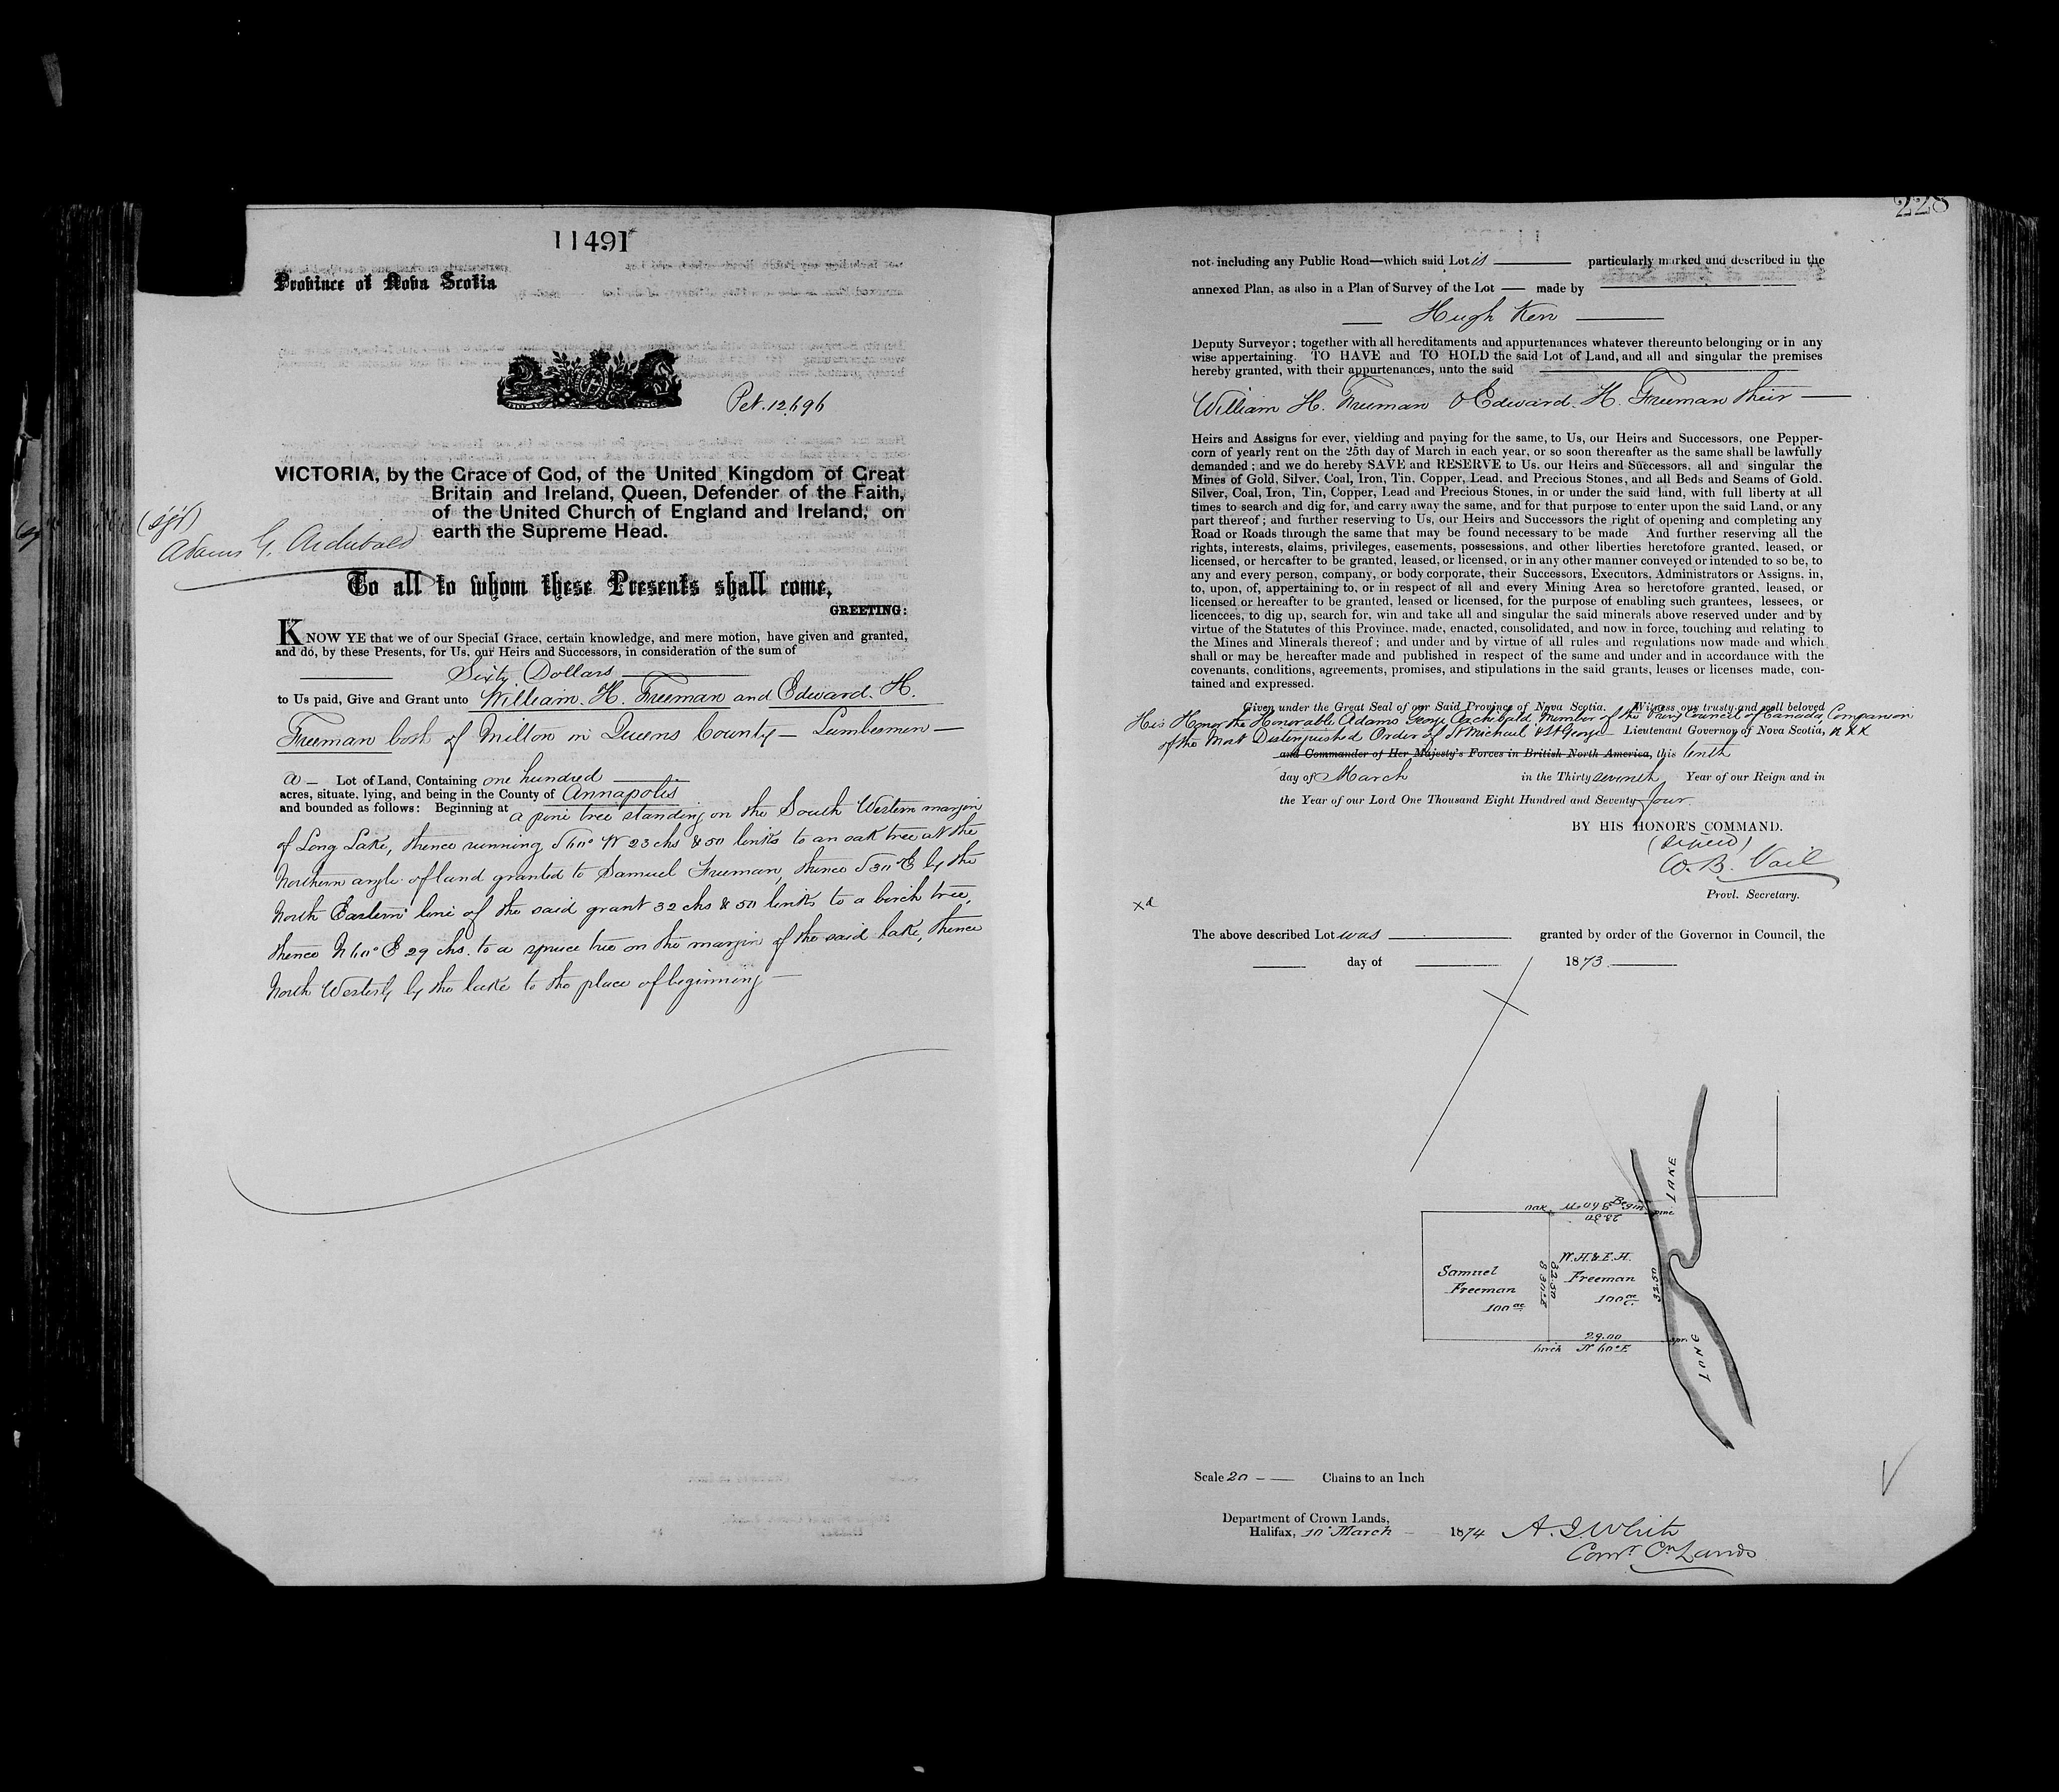 11491
Province of Nova Scotia
Pet. 12696
VICTORIA, by the Grace of God, of the United Kingdom of Great
Britain and Ireland, Queen, Defender of the Faith,
of the United Church of England and Ireland, on
earth the Supreme Head.
(sgd)
Adams G. Archibald
To all to whom these Presents shall come,
GREETING:
KNOW YE that we of our Special Grace, certain knowledge, and mere motion, have given and granted,
and do, by these Presents, for Us, our Heirs and Successors, in consideration of the sum of
Sixty Dollars
to Us paid, Give and Grant unto William. H. Freeman and Edward. H.
Freeman both of Milton in Queens County — Lumbermen —
a — Lot of Land, Containing one hundred
acres, situate, lying, and being in the County of Annapolis
and bounded as follows: Beginning at a pine tree standing on the South Western margin
of Long Lake, thence running S 60° W 23 chs & 50 links to an oak tree at the
Northern angle of land granted to Samuel Freeman, thence S 30° E by the
North Eastern line of the said grant 32 chs & 50 links to a birch tree,
thence N 60° E 29 chs. to a spruce tree on the margin of the said lake, thence
North Westerly by the lake to the place of beginning —
228
not including any Public Road—which said Lot is particularly marked and described in the
annexed Plan, as also in a Plan of Survey of the Lot — made by
Hugh Kerr
Deputy Surveyor; together with all hereditaments and appurtenances whatever thereunto belonging or in any
wise appertaining. TO HAVE and TO HOLD the said Lot of Land, and all and singular the premises
hereby granted, with their appurtenances, unto the said
William H. Freeman & Edward. H. Freeman their —
Heirs and Assigns for ever, yielding and paying for the same, to Us, our Heirs and Successors, one Pepper-
corn of yearly rent on the 25th day of March in each year, or so soon thereafter as the same shall be lawfully
demanded; and we do hereby SAVE and RESERVE to Us. our Heirs and Successors, all and singular the
Mines of Gold, Silver, Coal, Iron, Tin, Copper, Lead, and Precious Stones, and all Beds and Seams of Gold,
Silver, Coal, Iron, Tin, Copper, Lead and Precious Stones, in or under the said land, with full liberty at all
times to search and dig for, and carry away the same, and for that purpose to enter upon the said Land, or any
part thereof; and further reserving to Us, our Heirs and Successors the right of opening and completing any
Road or Roads through the same that may be found necessary to be made And further reserving all the
rights, interests, claims, privileges, easements, possessions, and other liberties heretofore granted, leased, or
licensed, or hereafter to be granted, leased, or licensed, or in any other manner conveyed or intended to so be, to
any and every person, company, or body corporate, their Successors, Executors, Administrators or Assigns, in,
to, upon, of, appertaining to, or in respect of all and every Mining Area so heretofore granted, leased, or
licensed or hereafter to be granted, leased or licensed, for the purpose of enabling such grantees, lessees, or
licencees, to dig up, search for, win and take all and singular the said minerals above reserved under and by
virtue of the Statutes of this Province, made, enacted, consolidated, and now in force, touching and relating to
the Mines and Minerals thereof; and under and by virtue of all rules and regulations now made and which
shall or may be hereafter made and published in respect of the same and under and in accordance with the
covenants, conditions, agreements, promises, and stipulations in the said grants, leases or licenses made, con-
tained and expressed.
Given under the Great Seal of our Said Province of Nova Scotia. Witness our trusty and well beloved
His Honor the Honorable Adams George Archibald, Member of the Privy Council of Canada, Companion
of the Most Distinguished Order of St Michael & St George Lieutenant Governor of Nova Scotia,
and Commander of Her Majesty's Forces in British North America, this tenth
day of March in the Thirty seventh Year of our Reign and in
the Year of our Lord One Thousand Eight Hundred and Seventy four
BY HIS HONOR'S COMMAND.
(Signed)
W. B. Vail
Provl. Secretary.
xd
The above described Lot was granted by order of the Governor in Council, the
day of 1873
LAKE
oak S 60° W Begin
23.50 pine
Samuel
Freeman
100 ac
S 30° E
32.50
W. H. & E. H.
Freeman
100 ac
32.50
29.00
birch N 60° E
spr.
LONG
Scale 20 — — Chains to an Inch
Department of Crown Lands,
Halifax, 10 March 1874
A. J. White
Comr. Cn. Lands